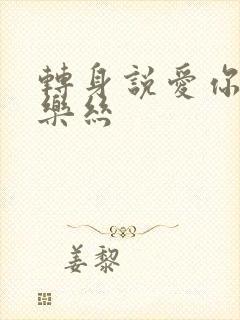 轉身説愛你
樂絲
姜黎